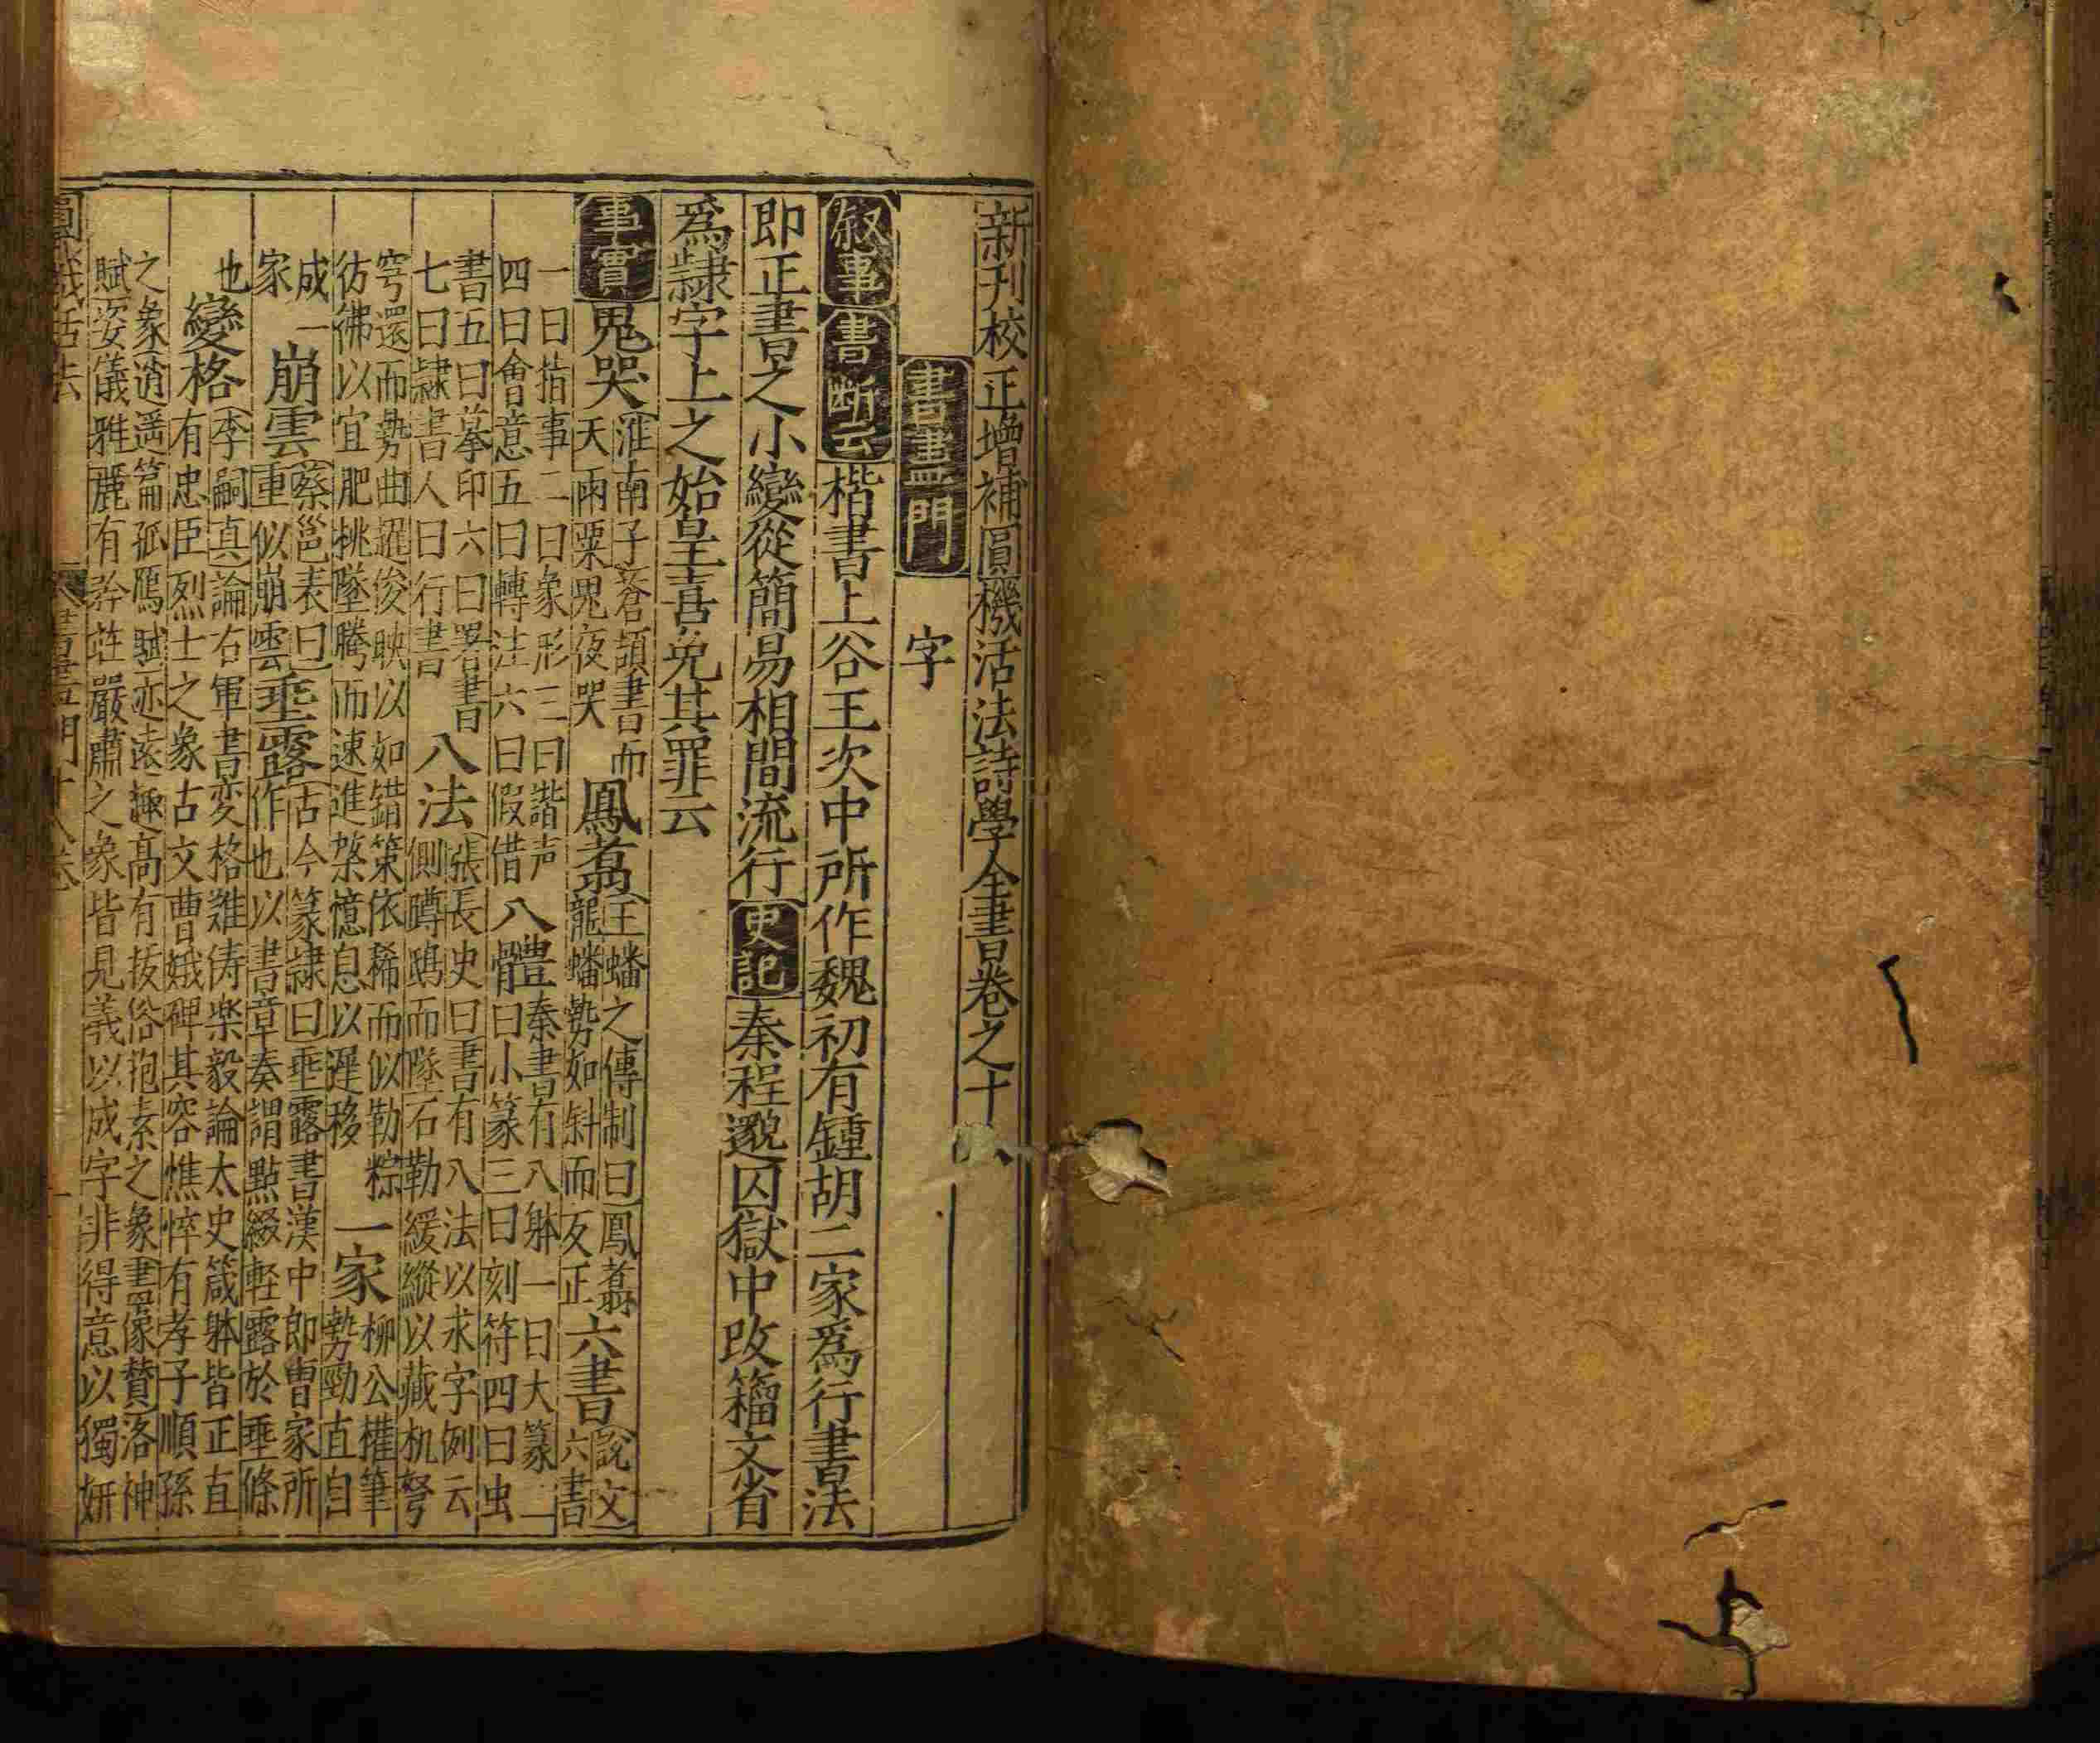 新刊校正增補圓機活法詩學全書卷之十
書畫門
字
叙事 書断云 楷書上谷王次中所作魏初有鍾胡二家爲行書法
即正書之小變從簡易相間流行 史記 秦程邈囚獄中改籀文省
爲隷字上之始皇喜免其罪云
事實 鬼哭 淮南子蒼頡書而
天雨粟鬼夜哭
鳳翥 王蟠之傳制曰鳳翥
龍蟠勢如斜而反正
六書 說文
六書
一曰指事二曰象形三曰諧声
四曰會意五曰轉注六曰假借
八體 秦書有八躰一曰大篆二
曰小篆三曰刻符四曰虫
書五曰摹印六曰署書
七曰隷書人曰行書
八法 張長史曰書有八法以求字例云
側蹲鴟而墜石勒緩縱以藏机弩
穹還而勢曲趯俊映以如錯策依稀而似勒粽
彷彿以宜肥挑墜騰而速進磔憶息以遲移
一家 柳公權筆
勢勁直自
成一
家
崩雲 蔡邕表曰
重似崩雲
垂露 古今篆隷曰垂露書漢中郎曹家所
作也以書章奏謂點綴軽露於垂條
也
變格 李嗣真論右軍書変格難俦楽毅論太史箴躰皆正直
有忠臣烈士之象古文曹娥碑其容憔悴有孝子順孫
之象逍遥篇孤鴈賦亦遠趣高有抜俗抱素之象畫像賛洛神
賦姿儀雅麗有矜莊嚴肅之象皆見義以成字非得意以獨妍